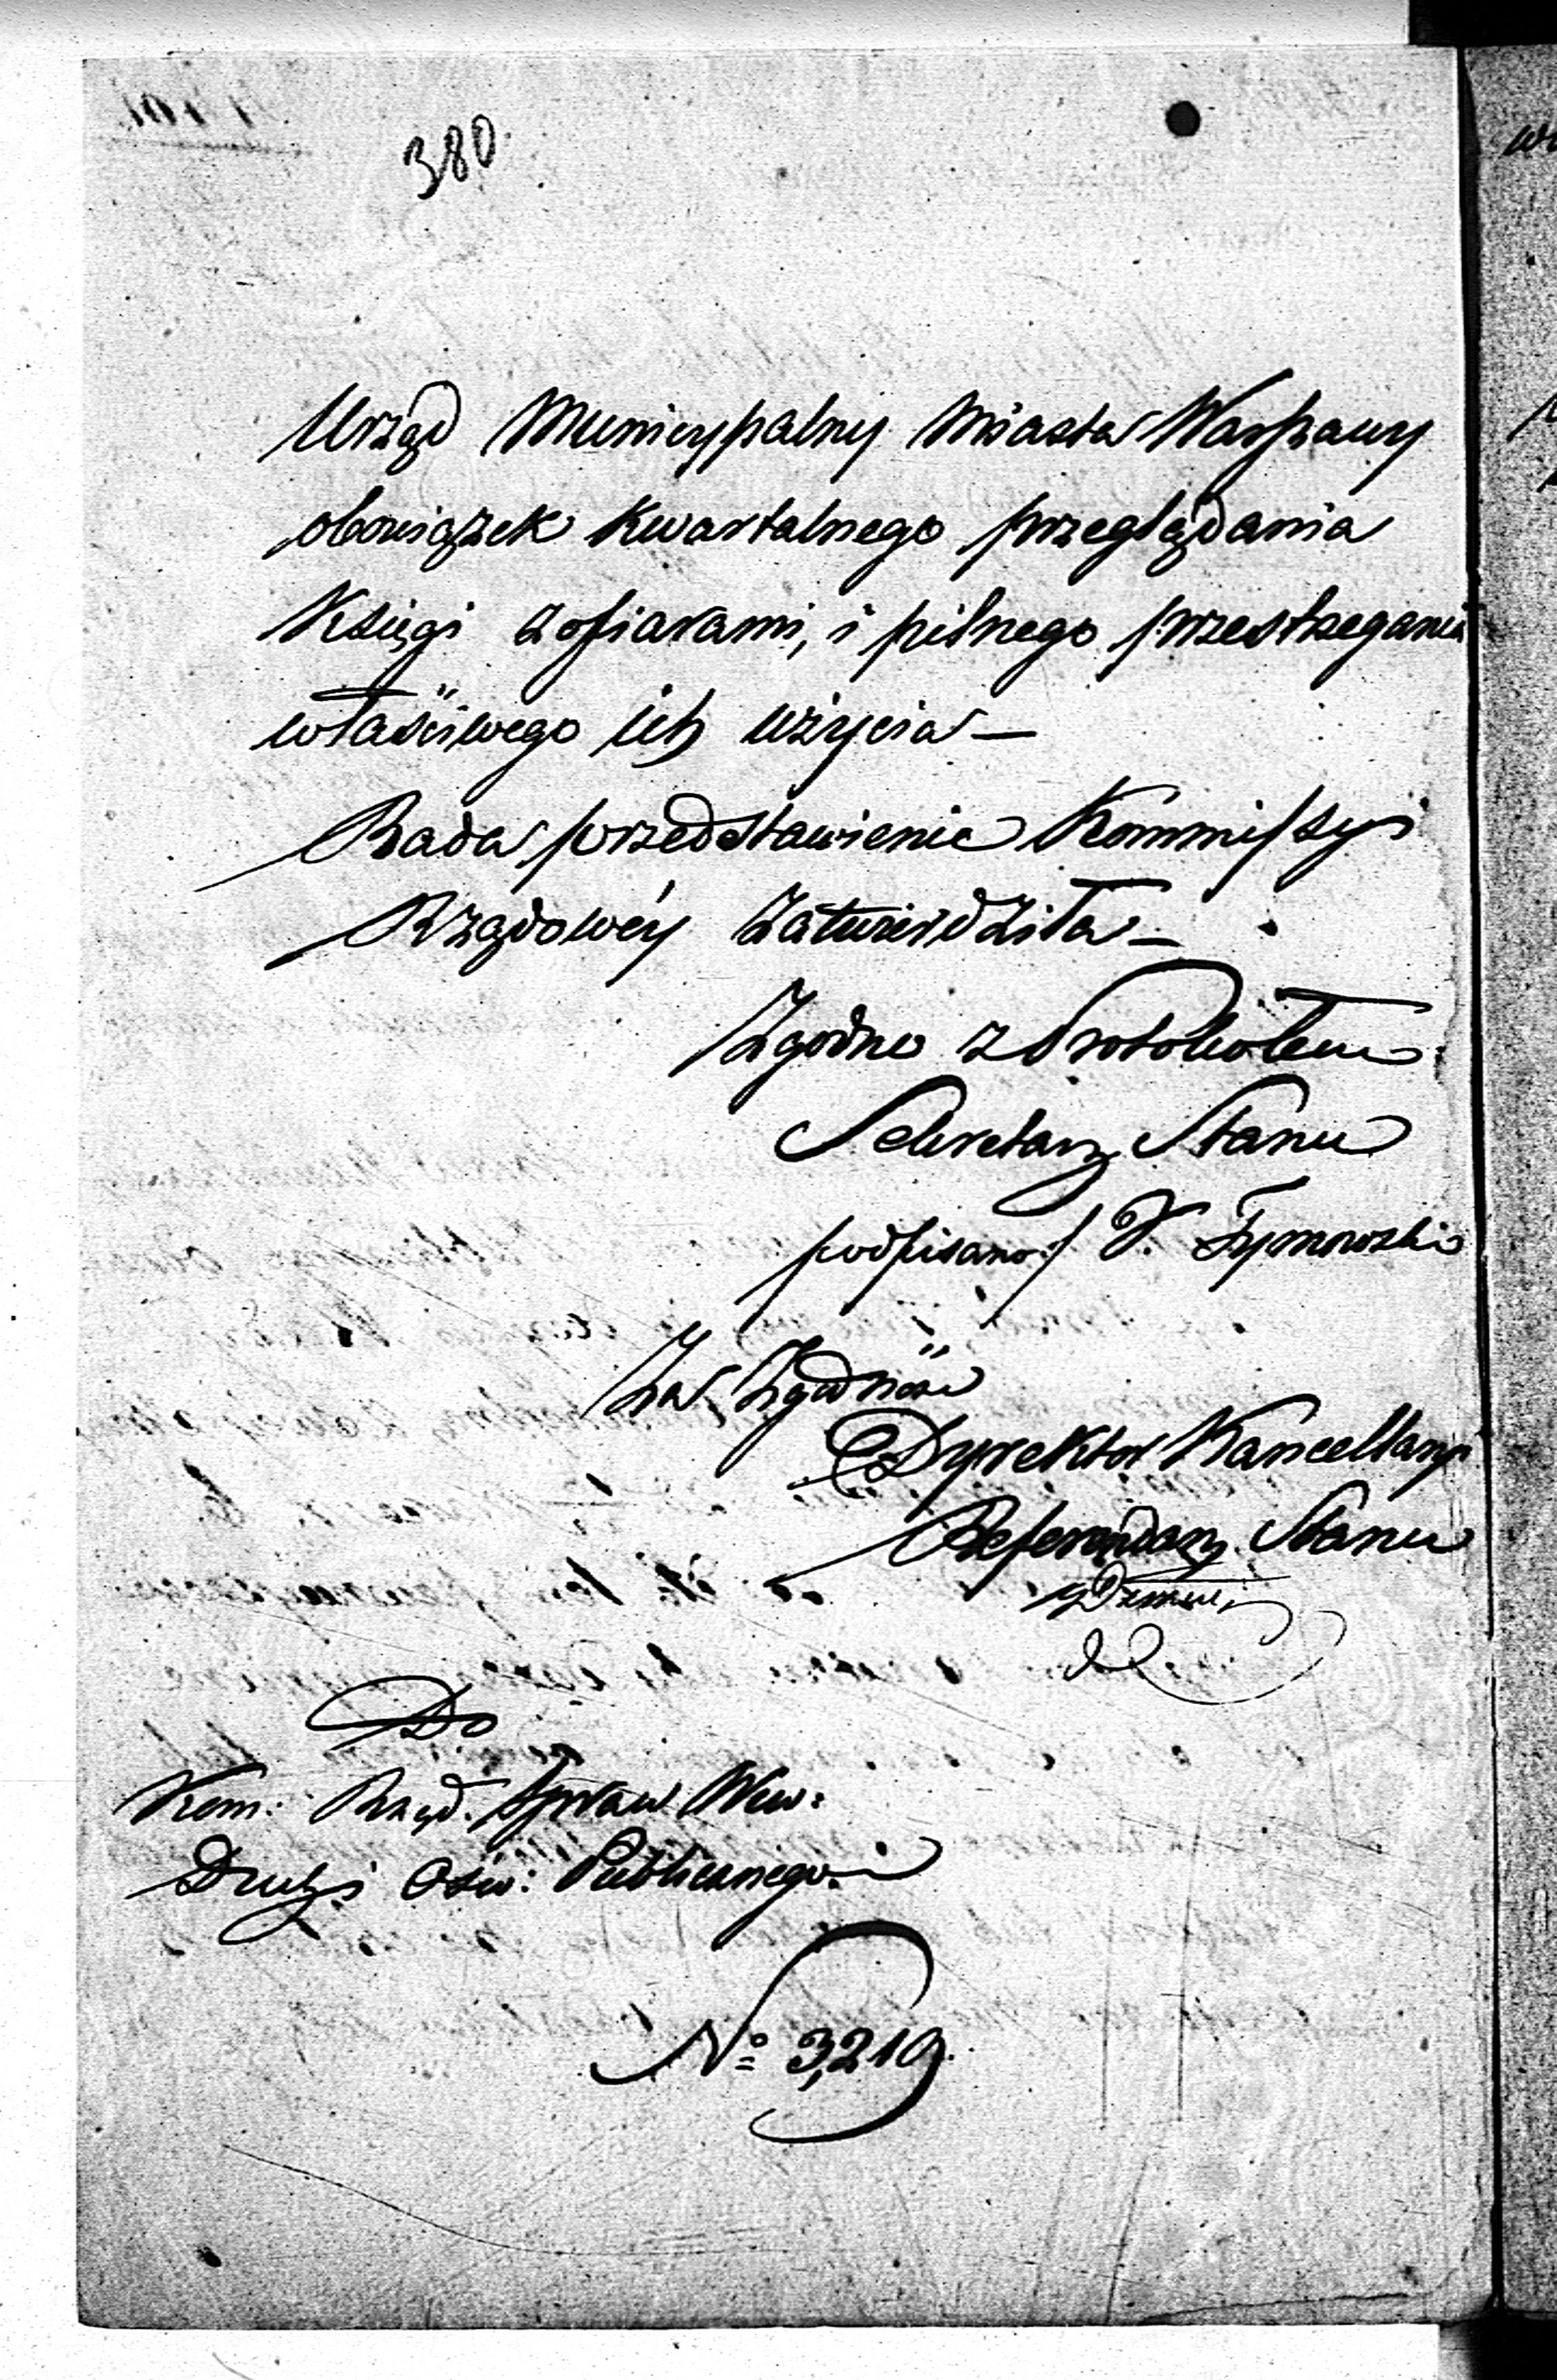 380
Urząd Municypalny Miasta Warszawy
obowiązek kwartalnego przeglądania
Księgi z ofiarami, i pilnego przestrzegania
właściwego ich użycia —
Rada przedstawienie Kommissyi
Rządowéy zatwierdziła —
Zgodno z Protokołem
Sekretarz Stanu
podpisano/ J. Tymowski
Za Zgodność
Dyrektor Kancellaryi
Referendarz Stanu
Do
Kom: Rząd. Spraw Wew:
Duch: i Ośw: Publicznego
No 3,219